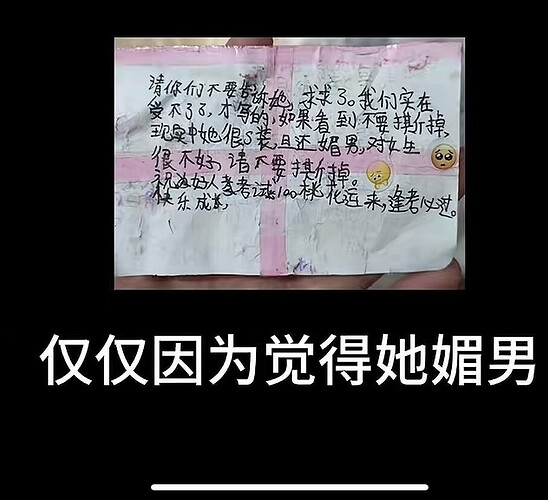 请你们不要告诉她，求求了。我们实在
受不了了，才写的，如果看到不要撕掉，
现实中她很S装，且还媚男，对女生
很不好，请不要撕掉。
祝好人考试100 桃花运来，逢考必过。
快乐成
仅仅因为觉得她媚男